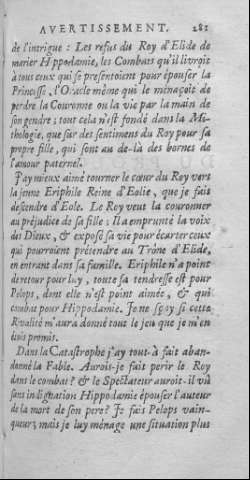 AVERTISSEMENT. 281
de l'intrigue : Les refus du Roy d'Elide de
marier Hppodamie, les Combats qu'il livroit
à tous ceux qui se presentoient pour épouser la
Princesse, l'Oracle même qui le menaçoit de
perdre la Couronne ou la vie par la main de
son gendre ; tout cela n'est fondé dans la Mi-
thologie, que sur des sentimens du Roy pour sa
propre fille, qui sont au de-là des bornes de
l'amour paternel.
J'ay mieux aimé tourner le cœur du Roy vers
la jeune Eriphile Reine d'Eolie, que je fais
descendre d'Eole. Le Roy veut la couronner
au préjudice de sa fille ; Il a emprunté la voix
des Dieux, & exposé sa vie pour écarter ceux
qui pourroient prétendre au Trône d'Elide,
en entrant dans sa famille. Eriphile n'a point
de retour pour luy, toute sa tendresse est pour
Pelops, dont elle n'est point aimée, & qui
combat pour Hippodamie. Je ne sçay si cette
Rivalité m'aura donné tout le jeu que je m'en
suis promis.
Dans la Catastrophe j'ay tout-à fait aban-
donné la Fable. Aurois-je fait perir le Roy
dans le combat ? & le Spectateur auroit-il vû
sans indignation Hippodamie épouser l'auteur
de la mort de son pere ? Je fais Pelops vain-
queur, mais je luy ménage une situation plus